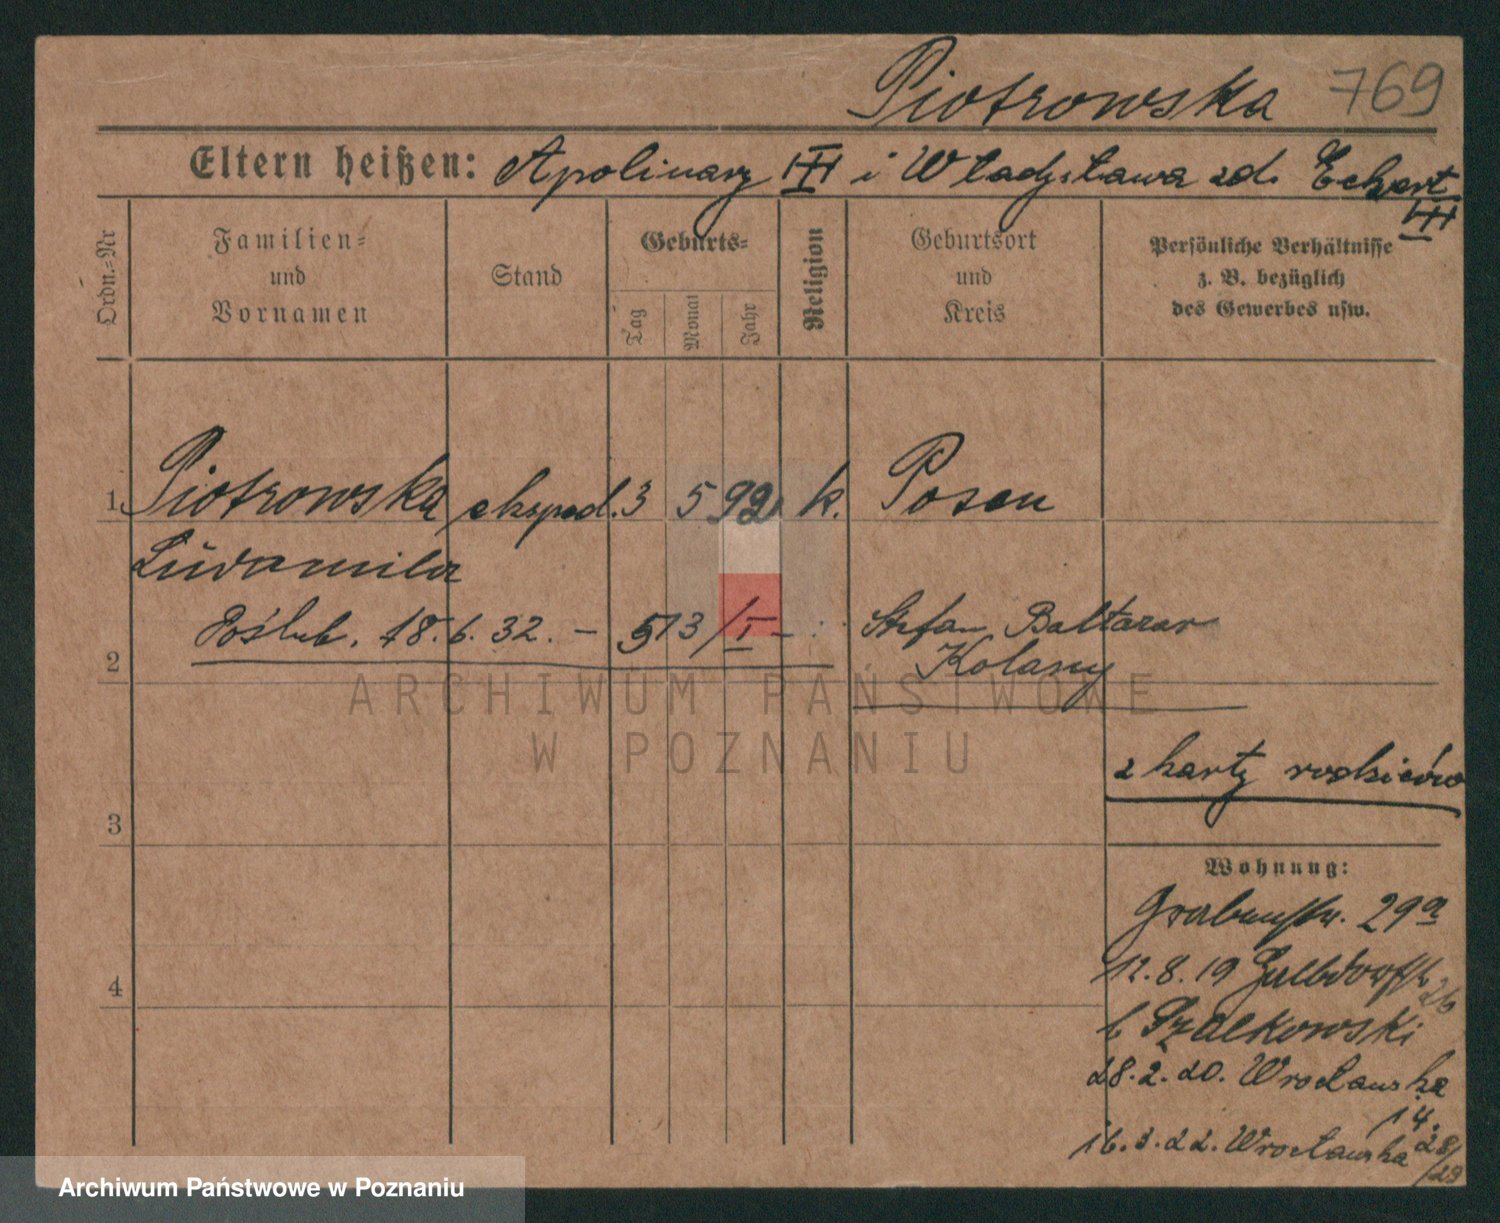 Piotrowska 769
Eltern heißen: Apolinary III i Władysława zd. Eckert
III
Ordn.-Nr
Familien-
und
Vornamen
Stand
Geburts-
Tag
Monat
Jahr
Religion
Geburtsort
und
Kreis
Persönliche Verhältnisse
z. B. bezüglich
des Gewerbes usw.
1 Piotrowska ekspod. 3 5 92 k. Posen
Ludamila
Poślub. 18.6.32. – 513/I – Stefan Baltazar
2 Kolany
ARCHIWUM PAŃSTWOWE
W POZNANIU
z karty rodziców
3
Wohnung:
Grabenstr. 29a
12.8.19
26
4
b Szalkowski
28.2.20. Wrocławska
14.
16.3.22. Wrocławska 28/29
Archiwum Państwowe w Poznaniu